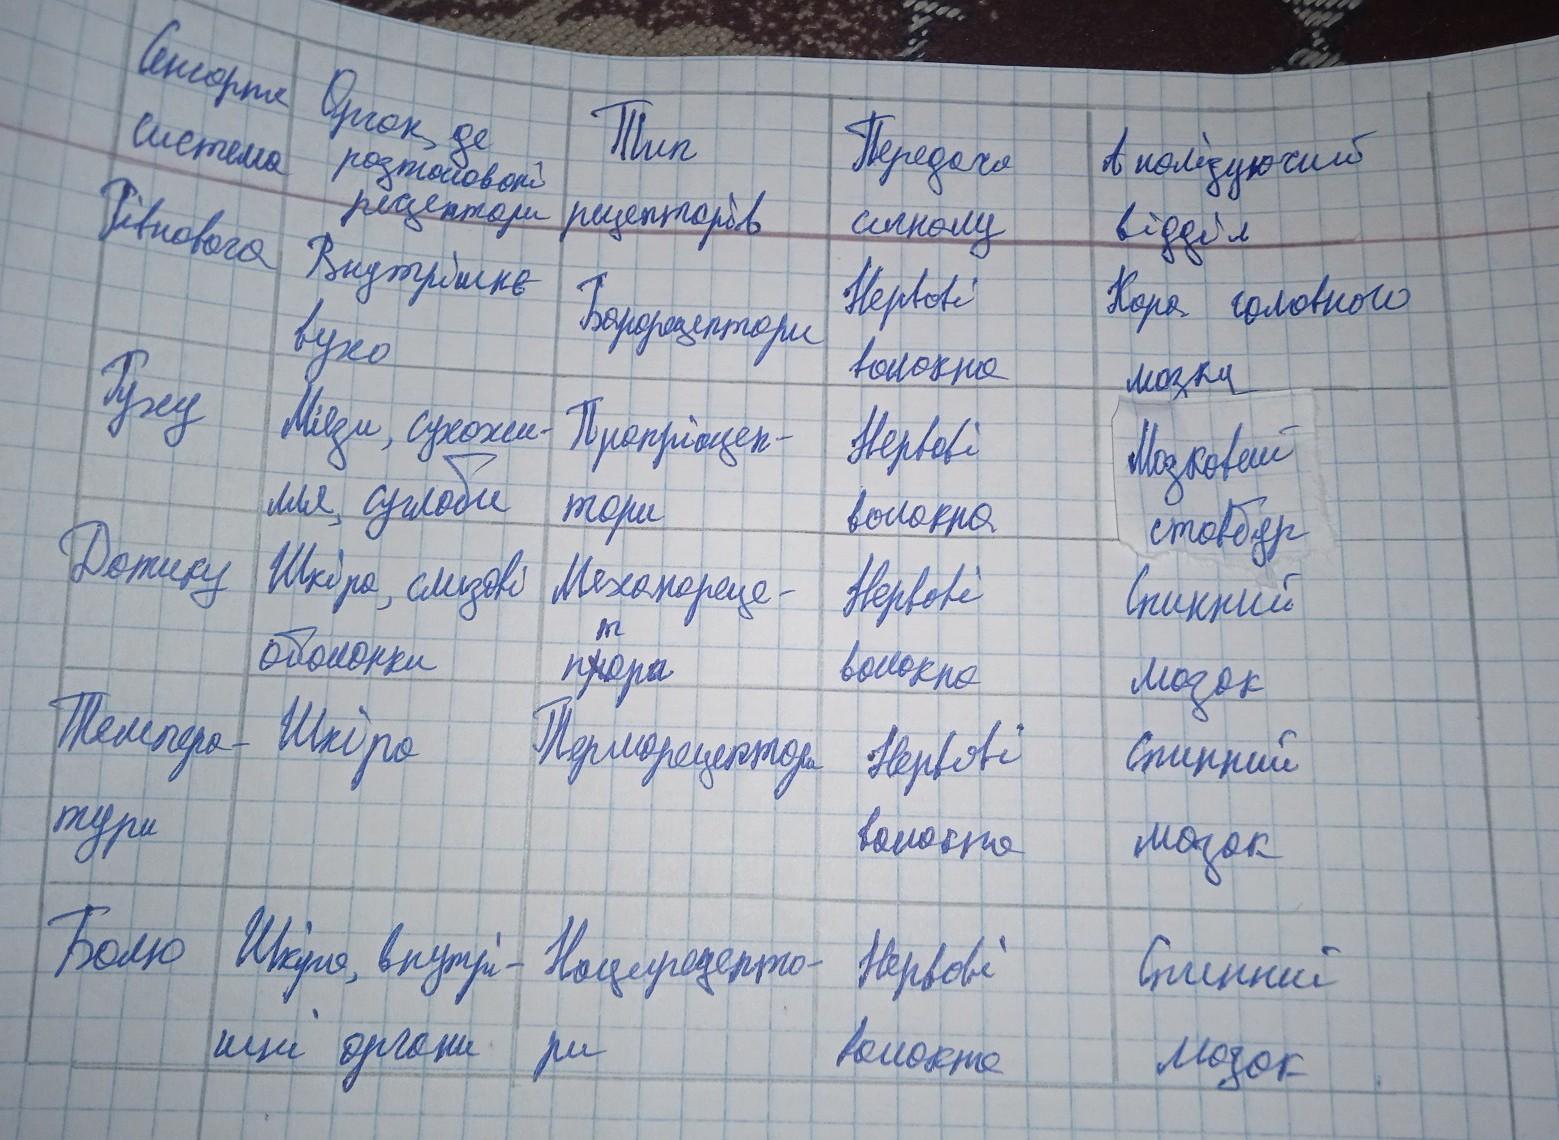 Сенсорна система
Орган, де розташовані рецептори
Тип рецепторів
Передача сигналу
Аналізуючий відділ
Рівновага
Внутрішнє вухо
Барорецептори
Нервові волокна
Кора головного мозку
Руху
М'язи, сухожилля, суглоби
Пропріоцептори
Нервові волокна
Мозковий стовбур
Дотику
Шкіра, слизові оболонки
Механорецептори
Нервові волокна
Спинний мозок
Температури
Шкіра
Терморецептори
Нервові волокна
Спинний мозок
Болю
Шкіра, внутрішні органи
Ноцирецептори
Нервові волокна
Спинний мозок